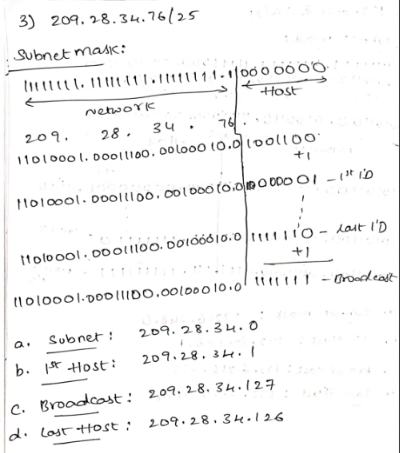 3) 209.28.34.76/25
Subnet mask:
11111111.11111111.11111111.1|0000000
Network
Host
209. 28. 34. 76.
11010001.00011100.00100010.0|1001100
+1
11010001.00011100.00100010.0|0000001 - 1st I'D
11010001.00011100.00100010.0|1111110 - Last I'D
+1
11010001.00011100.00100010.0|1111111 - Broadcast
a. Subnet: 209.28.34.0
b. 1st Host: 209.28.34.1
c. Broadcast: 209.28.34.127
d. Last Host: 209.28.34.126